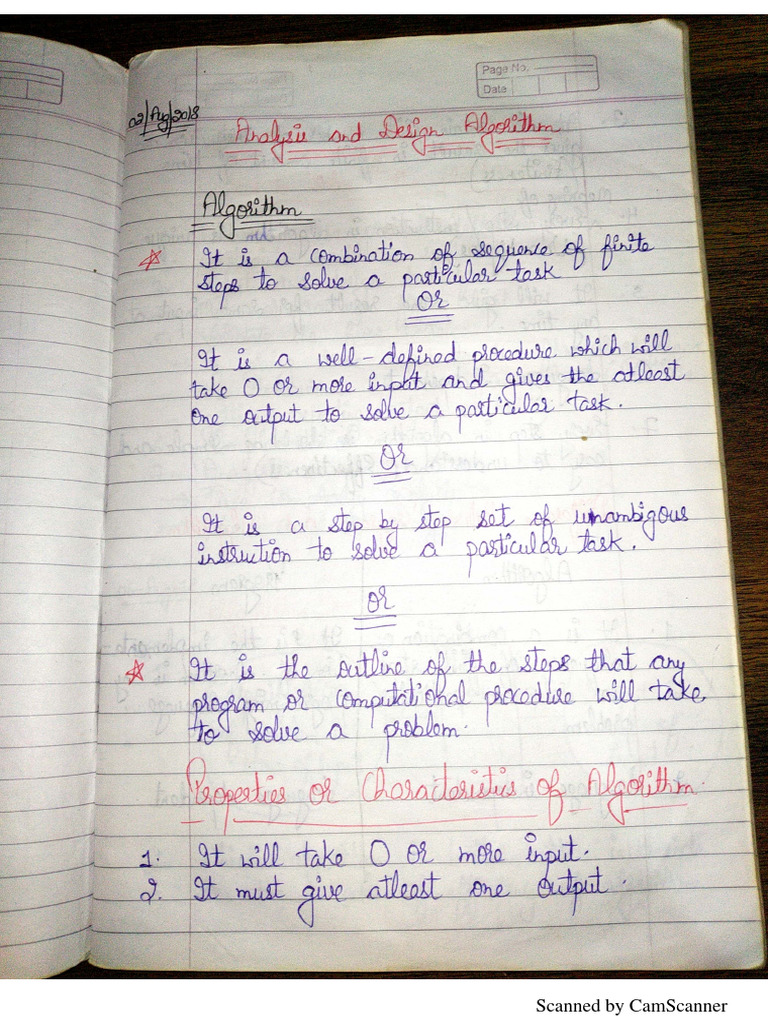 Page No.
Date
02/Aug/2018
Analysis and Design Algorithm
Algorithm
It is a combination of sequence of finite
steps to solve a particular task
Or
It is a well-defined procedure which will
take 0 or more input and gives the atleast
one output to solve a particular task.
Or
It is a step by step set of unambigous
instruction to solve a particular task.
Or
It is the outline of the steps that any
program or computational procedure will take
to solve a problem.
Properties or Characteristics of Algorithm
1. It will take 0 or more input.
2. It must give atleast one output.
Scanned by CamScanner